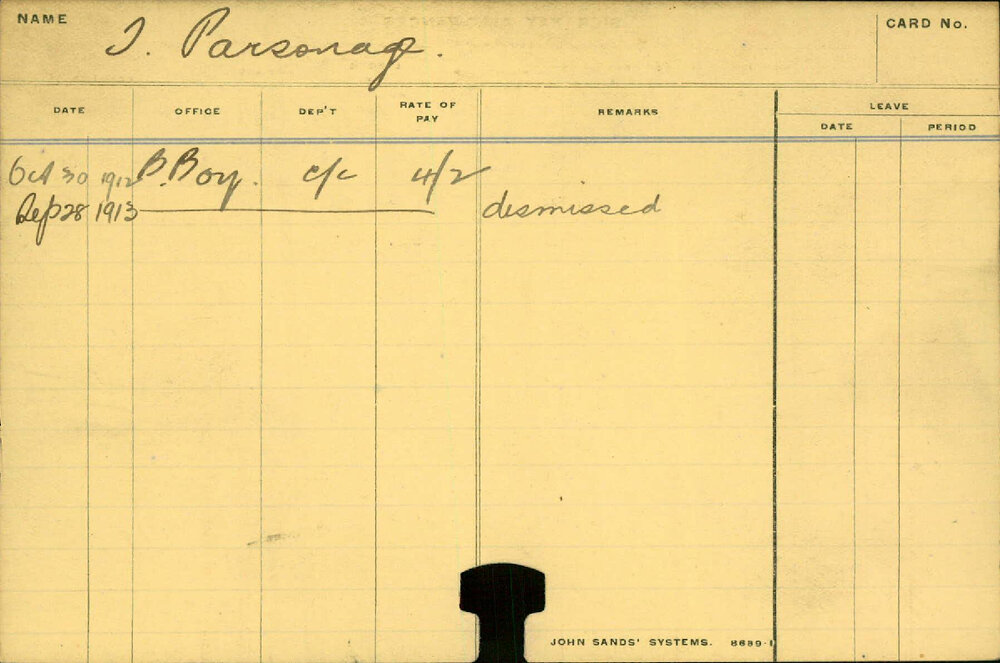 NAME T. Parsonage. CARD No.
DATE OFFICE DEP'T RATE OF PAY REMARKS LEAVE
DATE PERIOD
Oct 30 1912 B. Boy. c/c 4/2
Sep 28 1913 dismissed
JOHN SANDS' SYSTEMS. 8689-1